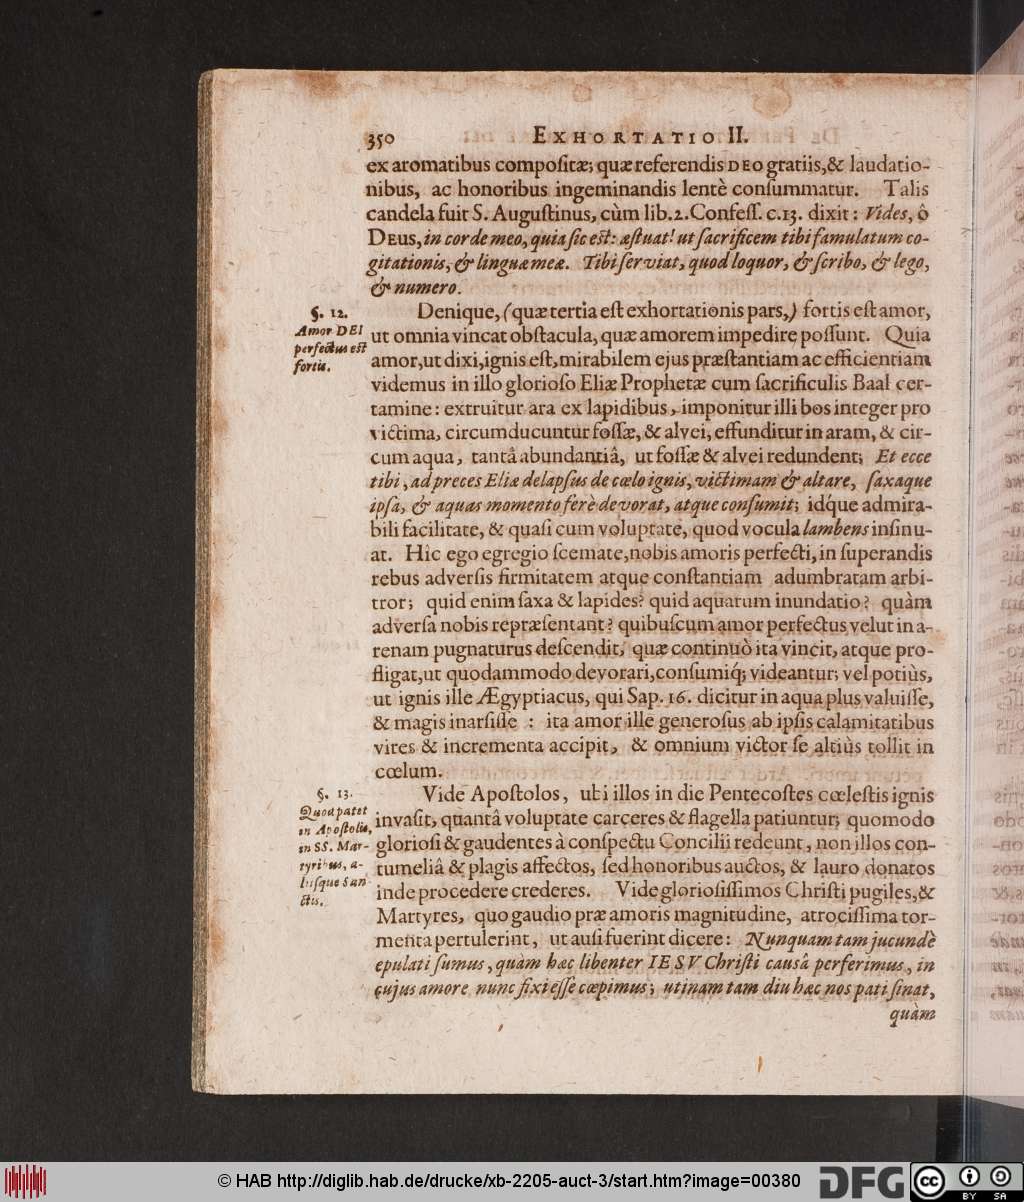 350 EXHORTATIO II.
ex aromatibus compoſitæ; quæ referendis DEO gratiis,& laudatio-
nibus, ac honoribus ingeminandis lentè conſummatur. Talis
candela fuit S. Auguſtinus, cùm lib.2.Confeſſ. c.13. dixit: Vides, ô
DEUS, in corde meo, quia ſic eſt: æſtuat! ut ſacrificem tibi famulatum co-
gitationis, & linguæ meæ. Tibi ſerviat, quod loquor, & ſcribo, & lego,
& numero.
§. 12.
Amor DEI
perfectus eſt
fortis.
Denique, (quæ tertia eſt exhortationis pars,) fortis eſt amor,
ut omnia vincat obſtacula, quæ amorem impedire poſſunt. Quia
amor,ut dixi,ignis eſt,mirabilem ejus præſtantiam ac efficientiam
videmus in illo glorioſo Eliæ Prophetæ cum ſacrificulis Baal cer-
tamine: extruitur ara ex lapidibus, imponitur illi bos integer pro
victima, circumducuntur foſſæ, & alvei, effunditur in aram, & cir-
cum aqua, tantâ abundantiâ, ut foſſæ & alvei redundent; Et ecce
tibi, ad preces Eliæ delapſus de cœlo ignis, victimam & altare, ſaxaque
ipſa, & aquas momento ferè devorat, atque conſumit; idq́ue admira-
bili facilitate, & quaſi cum voluptate, quod vocula lambens inſinu-
at. Hîc ego egregio ſcemate,nobis amoris perfecti, in ſuperandis
rebus adverſis firmitatem atque conſtantiam adumbratam arbi-
tror; quid enim ſaxa & lapides? quid aquarum inundatio? quàm
adverſa nobis repræſentant? quibuſcum amor perfectus velut in a-
renam pugnaturus deſcendit, quæ continuò ita vincit, atque pro-
fligat,ut quodammodo devorari,conſumiq́; videantur; vel potiùs,
ut ignis ille Ægyptiacus, qui Sap. 16. dicitur in aqua plus valuiſſe,
& magis inarſiſſe : ita amor ille generoſus ab ipſis calamitatibus
vires & incrementa accipit, & omnium victor ſe altiùs tollit in
cœlum.
§. 13.
Quod patet
in Apoſtolis,
in SS. Mar-
tyribus, a-
liiſque San-
ctis.
Vide Apoſtolos, ubi illos in die Pentecoſtes cœleſtis ignis
invaſit, quantâ voluptate carceres & flagella patiuntur; quomodo
glorioſi & gaudentes à conſpectu Concilii redeunt, non illos con-
tumeliâ & plagis affectos, ſed honoribus auctos, & lauro donatos
inde procedere crederes. Vide glorioſiſſimos Chriſti pugiles,&
Martyres, quo gaudio præ amoris magnitudine, atrociſſima tor-
menta pertulerint, ut auſi fuerint dicere: Nunquam tam jucundè
epulati ſumus, quàm hæc libenter IESV Chriſti causâ perferimus, in
cujus amore nunc fixi eſſe cœpimus; utinam tam diu hæc nos pati ſinat,
quàm
© HAB http://diglib.hab.de/drucke/xb-2205-auct-3/start.htm?image=00380
DFG
cc
BY SA